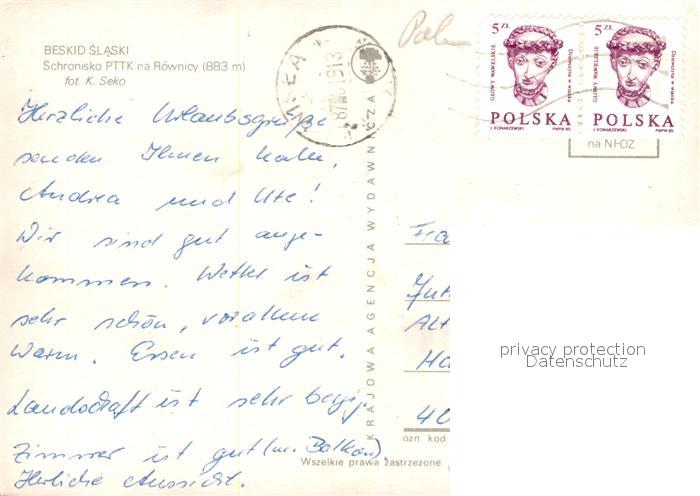 BESKID ŚLĄSKI
Schronisko PTTK na Równicy (883 m)
fot. K. Seko
Herzliche Urlaubsgrüße
senden Ihnen
Andrea und Ute!
Wir sind gut ange-
kommen. Wetter ist
sehr schön, vor allem
warm. Essen ist gut.
Landschaft ist sehr bergig.
Zimmer ist gut (m. Balkon).
Herrliche Aussicht.
KRAJOWA AGENCJA WYDAWNICZA
WISŁA
5 ZŁ
GŁOWY WAWELSKIE
Dziewczyna w wianku
POLSKA
J. KONARZEWSKI PWPW 85
5 ZŁ
GŁOWY WAWELSKIE
Dziewczyna w wianku
POLSKA
J. KONARZEWSKI PWPW 85
na NFOZ
Fra
Jut
Alt
Ha
40
ozn kod
Wszelkie prawa zastrzeżone
privacy protection
Datenschutz